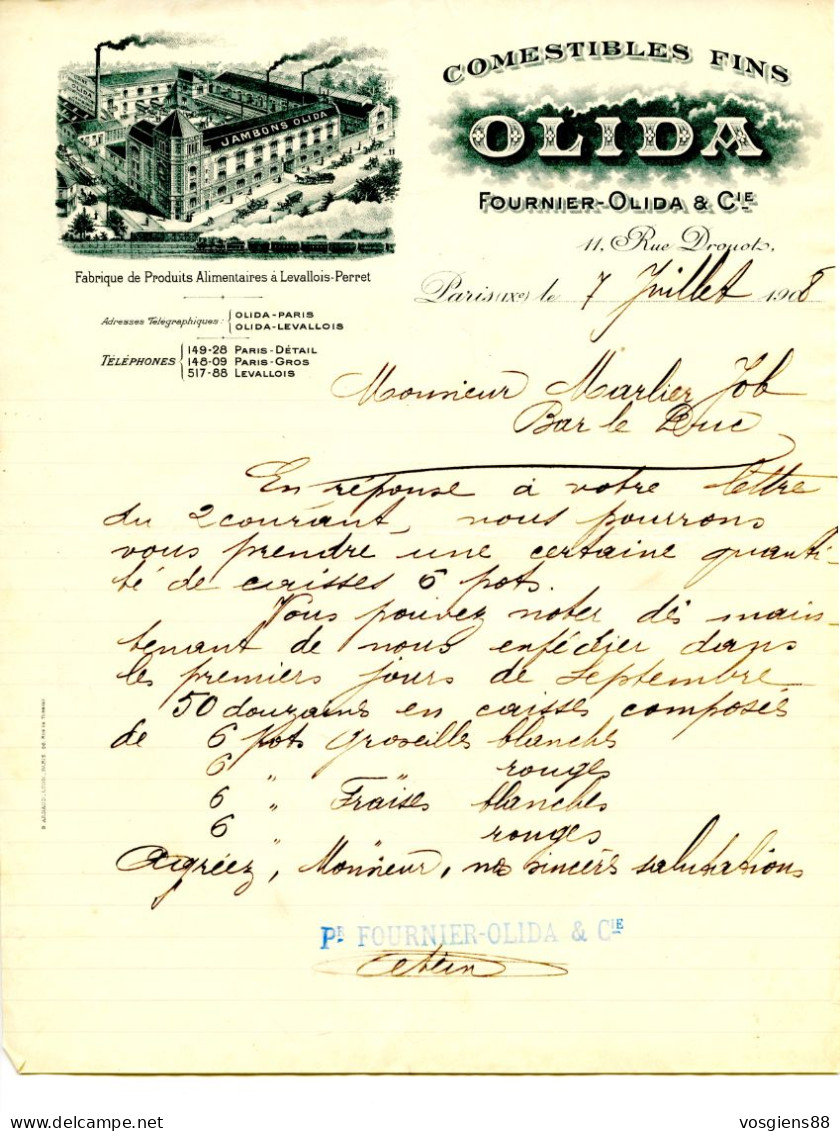 COMESTIBLES FINS
OLIDA
FOURNIER-OLIDA & CIE
11, Rue Drouot,
OLIDA
JAMBONS OLIDA
Fabrique de Produits Alimentaires à Levallois-Perret
Adresses Télégraphiques: OLIDA-PARIS
OLIDA-LEVALLOIS
TÉLÉPHONES 149-28 PARIS-DÉTAIL
148-09 PARIS-GROS
517-88 LEVALLOIS
Paris (IXe) le 7 Juillet 1908
Monsieur Marlier Job
Bar le Duc
En réponse à votre lettre
du 2 courant, nous pourrons
vous prendre une certaine quanti-
té de caisses 6 pots.
Vous pouvez noter dès main-
tenant de nous expédier dans
les premiers jours de Septembre
50 douzaines en caisses composées
de 6 pots Groseilles blanches
6 " " rouges
6 " Fraises blanches
6 " rouges
Agréez, Monsieur, nos sincères salutations
Pr FOURNIER-OLIDA & CIE
vosgiens88